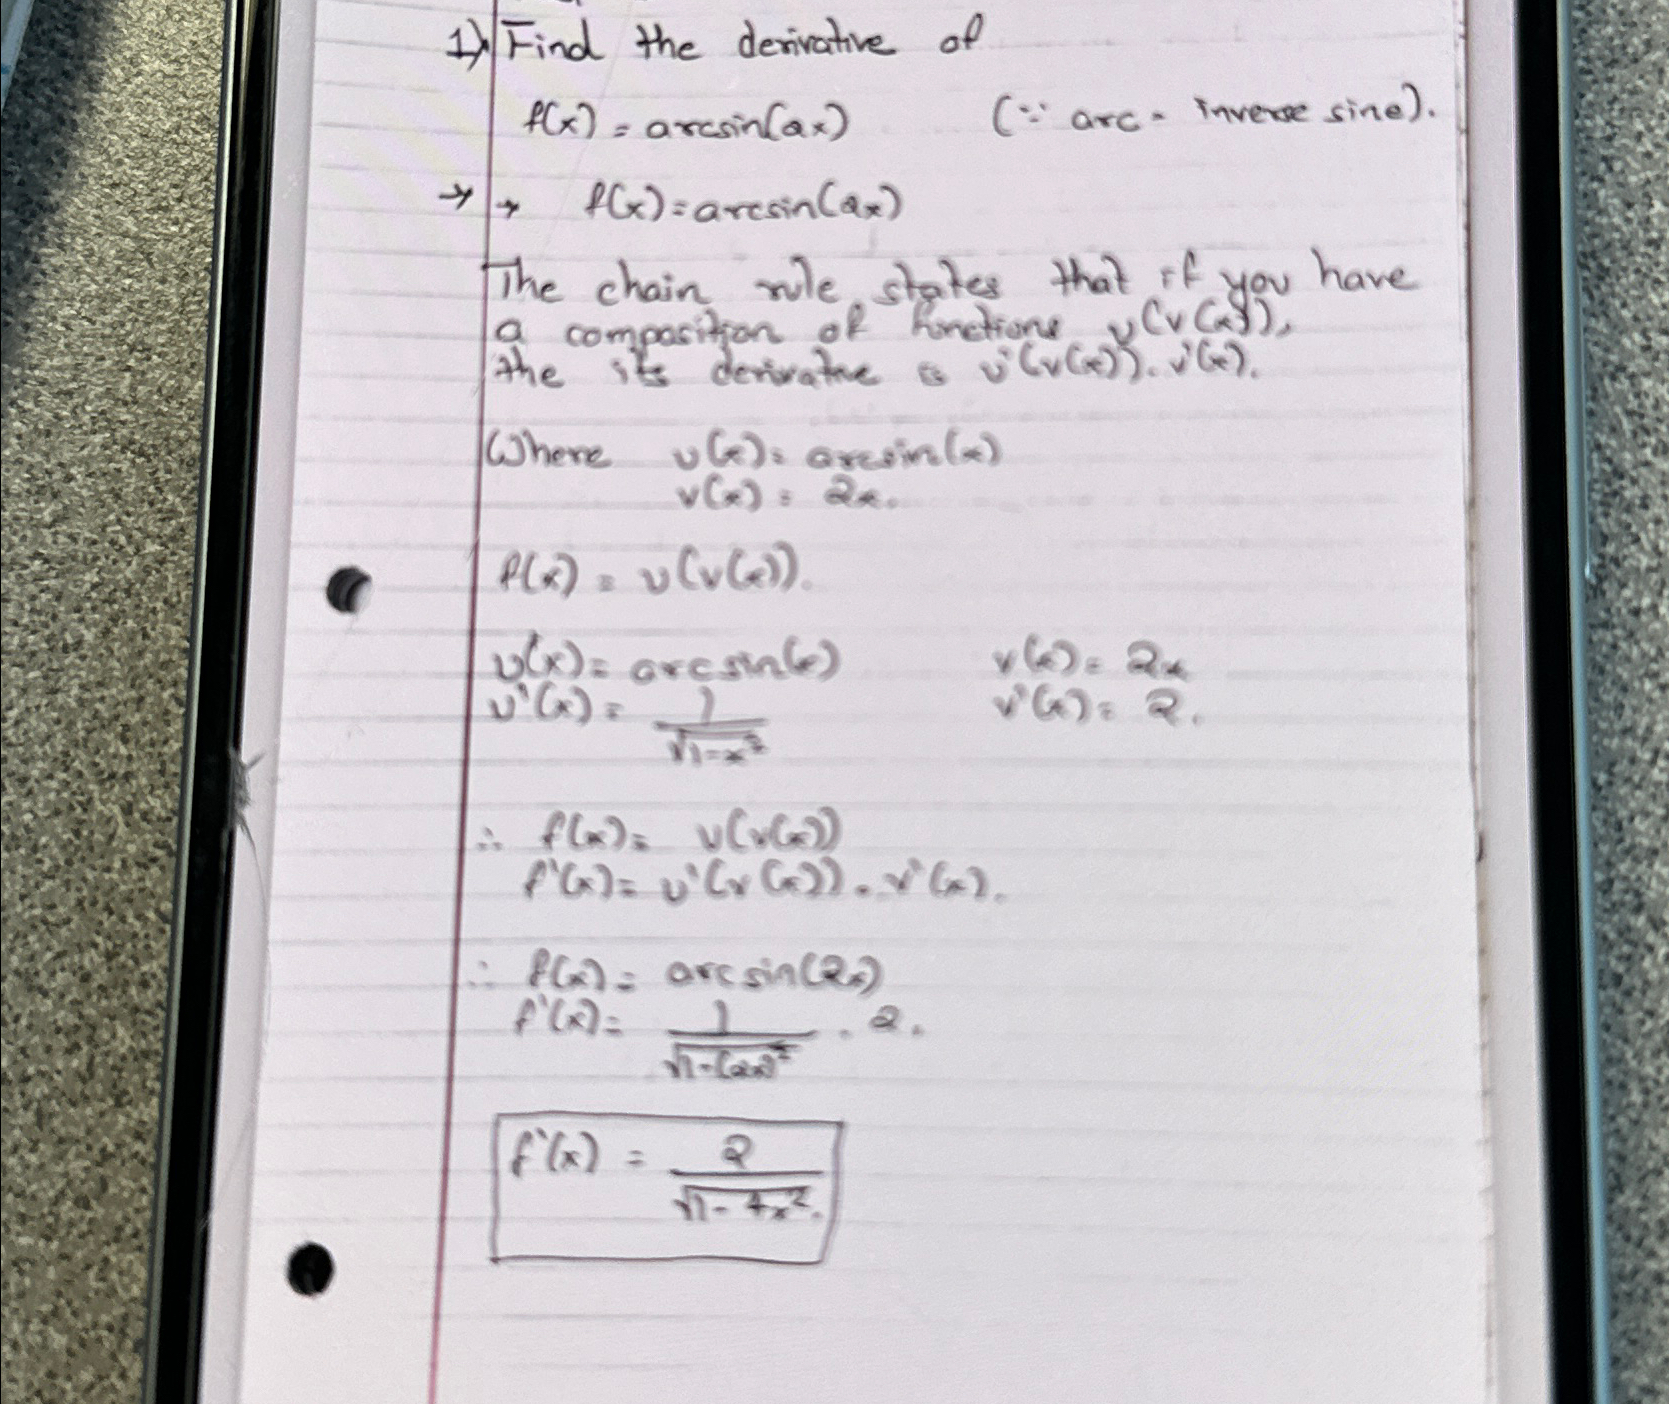 1) Find the derivative of
f(x) = arcsin(2x) (∵ arc = inverse sine).
→ → f(x) = arcsin(2x)
The chain rule states that if you have
a composition of functions u(v(x)),
the its derivative is u'(v(x)). v'(x).
Where u(x) = arcsin(x)
v(x) = 2x.
f(x) = u(v(x)).
u(x) = arcsin(x) v(x) = 2x
u'(x) = 1/√(1-x²) v'(x) = 2.
∴ f(x) = u(v(x))
f'(x) = u'(v(x)) . v'(x).
∴ f(x) = arcsin(2x)
f'(x) = 1/√(1-(2x)²) . 2.
f'(x) = 2/√(1-4x²).